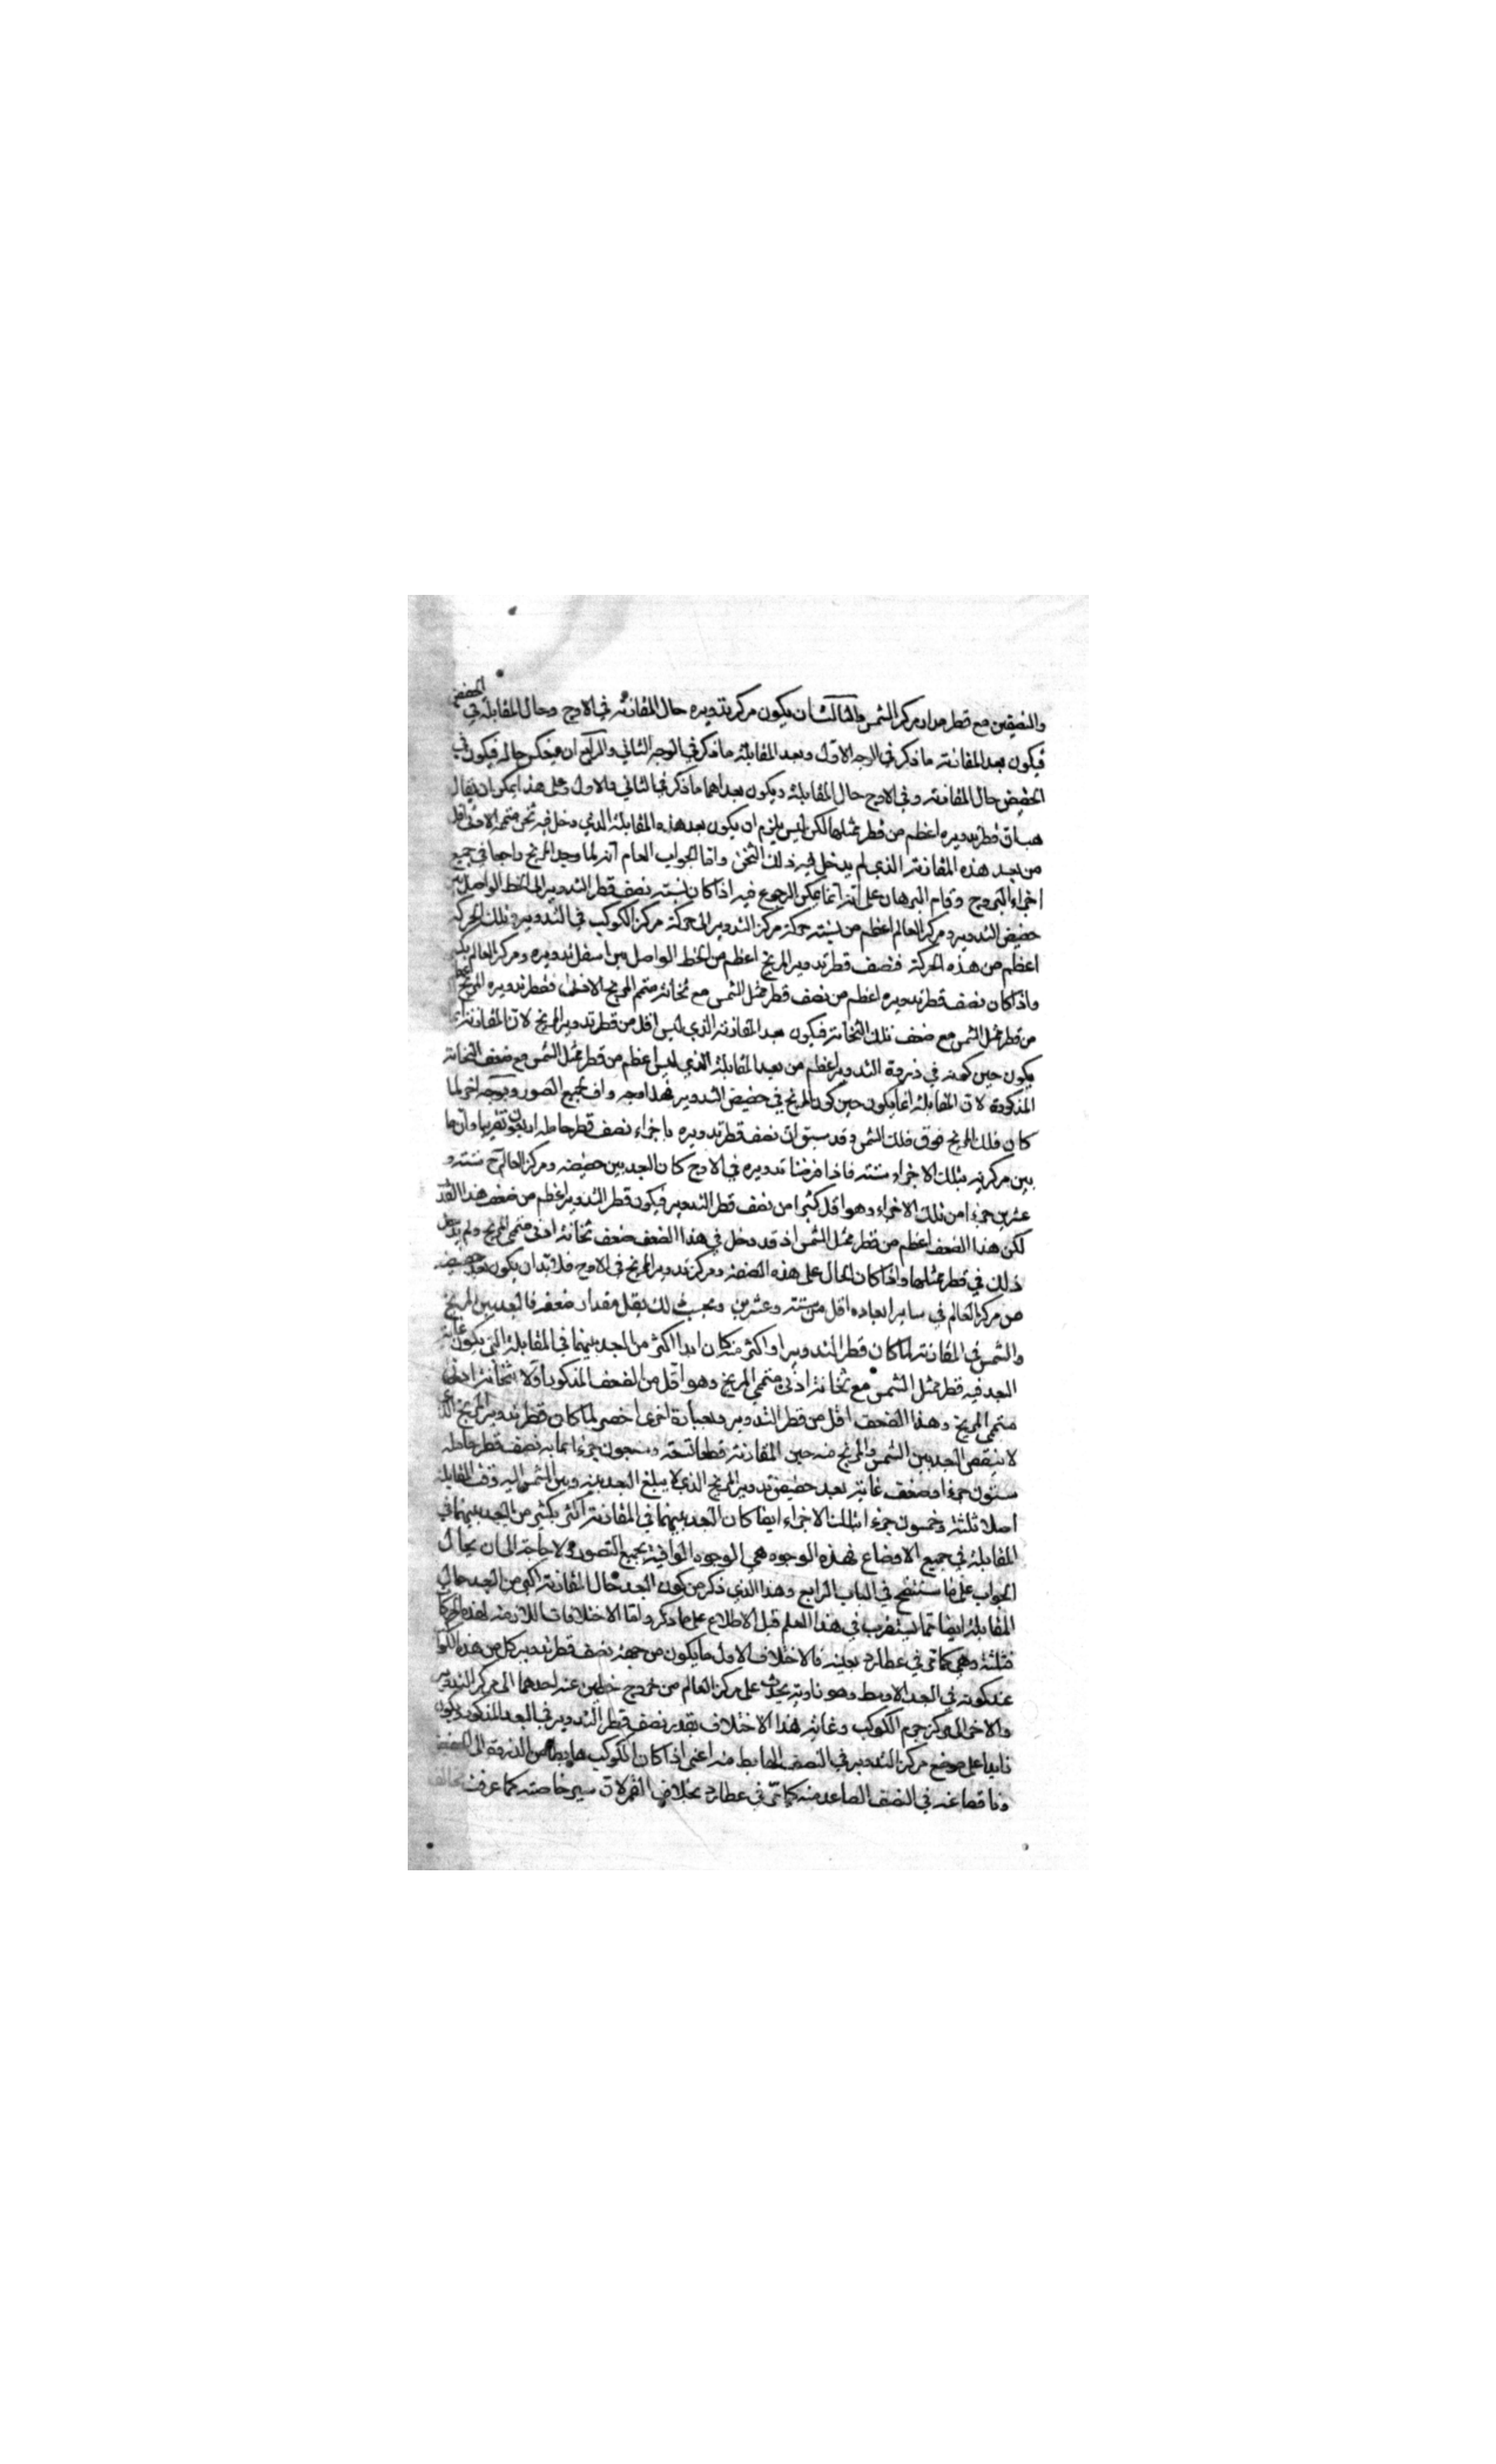 والنصفين مع قطر مدار مركز الشمس والثالث ان يكون مركز تدويره حال المقارنة في الاوج وحال المقابلة في الحضيض
فيكون بعد المقارنة ما ذكر في الوجه الاول وبعد المقابلة ما ذكر في الوجه الثاني والرابع ان ينعكس حاله فيكون في
الحضيض حال المقارنة وفي الاوج حال المقابلة ويكون بعداهما ما ذكر في الثاني والاول وعلى هذا يمكن ان يقال
هب ان قطر تدويره اعظم من قطر ممثلها لكن ليس يلزم ان يكون بعد هذه المقابلة الذي دخل فيه ثخن متممه الادنى اقل
من بعد هذه المقارنة الذي لم يدخل فيه ذلك الثخن واما الجواب العام انه لما وجد المريخ راجعا في جميع
اجزاء البروج وقام البرهان على انه انما يمكن الرجوع فيه اذا كان نسبة نصف قطر التدوير الى الخط الواصل بين
حضيض التدوير ومركز العالم اعظم من نسبة حركة مركز التدوير الى حركة مركز الكوكب في التدوير وتلك الحركة
اعظم من هذه الحركة فنصف قطر تدوير المريخ اعظم من الخط الواصل بين اسفل تدويره ومركز العالم
واذا كان نصف قطر تدويره اعظم من نصف قطر ممثل الشمس مع ثخانة متمم المريخ الادنى فقطر تدويره المريخ اعظم
من قطر ممثل الشمس مع ضعف تلك الثخانة فيكون بعد المقارنة الذي ليس اقل من قطر تدوير المريخ لان المقارنة انما
يكون حين كونه في ذروة التدوير اعظم من بعد المقابلة الذي ليس اعظم من قطر ممثل الشمس مع ضعف الثخانة
المذكورة لان المقابلة انما يكون حين كون المريخ في حضيض التدوير فهذا وجه واف بجميع الصور وبوجه اخر لما
كان فلك المريخ فوق فلك الشمس وقد سبق ان نصف قطر تدويره باجزاء نصف قطر حامله اربعون تقريبا وان ما
بين مركزيه بتلك الاجزاء ستة فاذا فرضنا تدويره في الاوج كان البعد بين حضيضه ومركز العالم ح ستة و
عشرين جزءا من تلك الاجزاء وهو اقل كثيرا من نصف قطر التدوير فيكون قطر التدوير اعظم من ضعف هذا القدر
لكن هذا الضعف اعظم من قطر ممثل الشمس اذ قد دخل في هذا الضعف ضعف ثخانة ادنى متممي المريخ ولم يدخل
ذلك في قطر ممثلها واذا كان الحال على هذه الصفة ومركز تدوير المريخ في الاوج فلا بد ان يكون بعد حضيضه
من مركز العالم في ساير ابعاده اقل من ستة وعشرين وبحسب ذلك يقل مقدار ضعفه فالبعد بين المريخ
والشمس في المقارنة لما كان قطر التدوير او اكثر منه كان ابدا اكثر من البعد بينهما في المقابلة التي يكون غاية
البعد فيه قطر ممثل الشمس مع ثخانة ادنى متممي المريخ وهو اقل من الضعف المذكور اولا بثخانة ادنى
متممي المريخ وهذا الضعف اقل من قطر التدوير وبعبارة اخرى اخصر لما كان قطر تدوير المريخ الذي
لا ينقص البعد بين الشمس والمريخ منه حين المقارنة قطعا تسعة وسبعون جزءا مما به نصف قطر حامله
ستون جزءا وضعف غاية بعد حضيض تدوير المريخ الذي لا يبلغ البعد بينه وبين الشمس اليه وقت المقابلة
اصلا ثلثة وخمسون جزءا بتلك الاجزاء ايضا كان البعد بينهما في المقارنة اكثر بكثير من البعد بينهما في
المقابلة في جميع الاوضاع فهذه الوجوه هي الوجوه الوافية بجميع الصور ولا حاجة الى ان يحال
الجواب على ما ستتضح في الباب الرابع وهذا الذي ذكر من كون البعد حال المقارنة اكبر من البعد حال
المقابلة ايضا مما يستغرب في هذا العلم قبل الاطلاع على ما ذكر واما الاختلافات اللازمة لهذه الحركات
فثلثة وهي كما في عطارد بعينه فالاختلاف الاول ما يكون من جهة نصف قطر تدوير كل من هذه الكواكب
عند كونه في البعد الاوسط وهو زاوية يحدث على مركز العالم من خروج خطين عنه احدهما الى مركز التدوير
والاخر الى مركز جرم الكوكب وغاية هذا الاختلاف بقدر نصف قطر التدوير في البعد المذكور ويكون
زايدا على موضع مركز التدوير في النصف الهابط منه اعني اذا كان الكوكب هابطا من الذروة الى الحضيض
وناقصا عنه في النصف الصاعد منه كما في عطارد بخلاف القمر لان سير خاصته كما عرفت يخالف